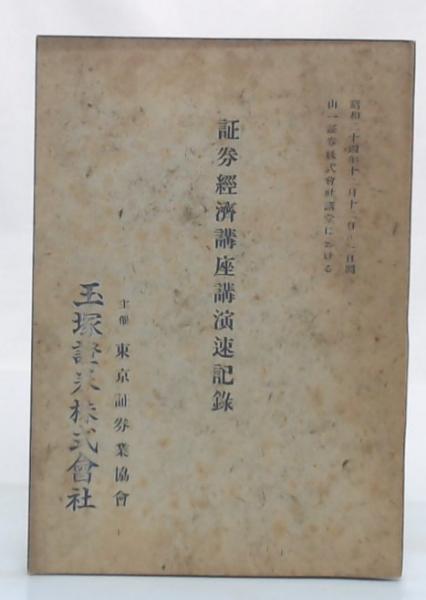 昭和二十四年十二月十二日
山一証券株式會社講堂における
証券經濟講座講演速記錄
主催 東京証券業協會
玉塚證券株式會社